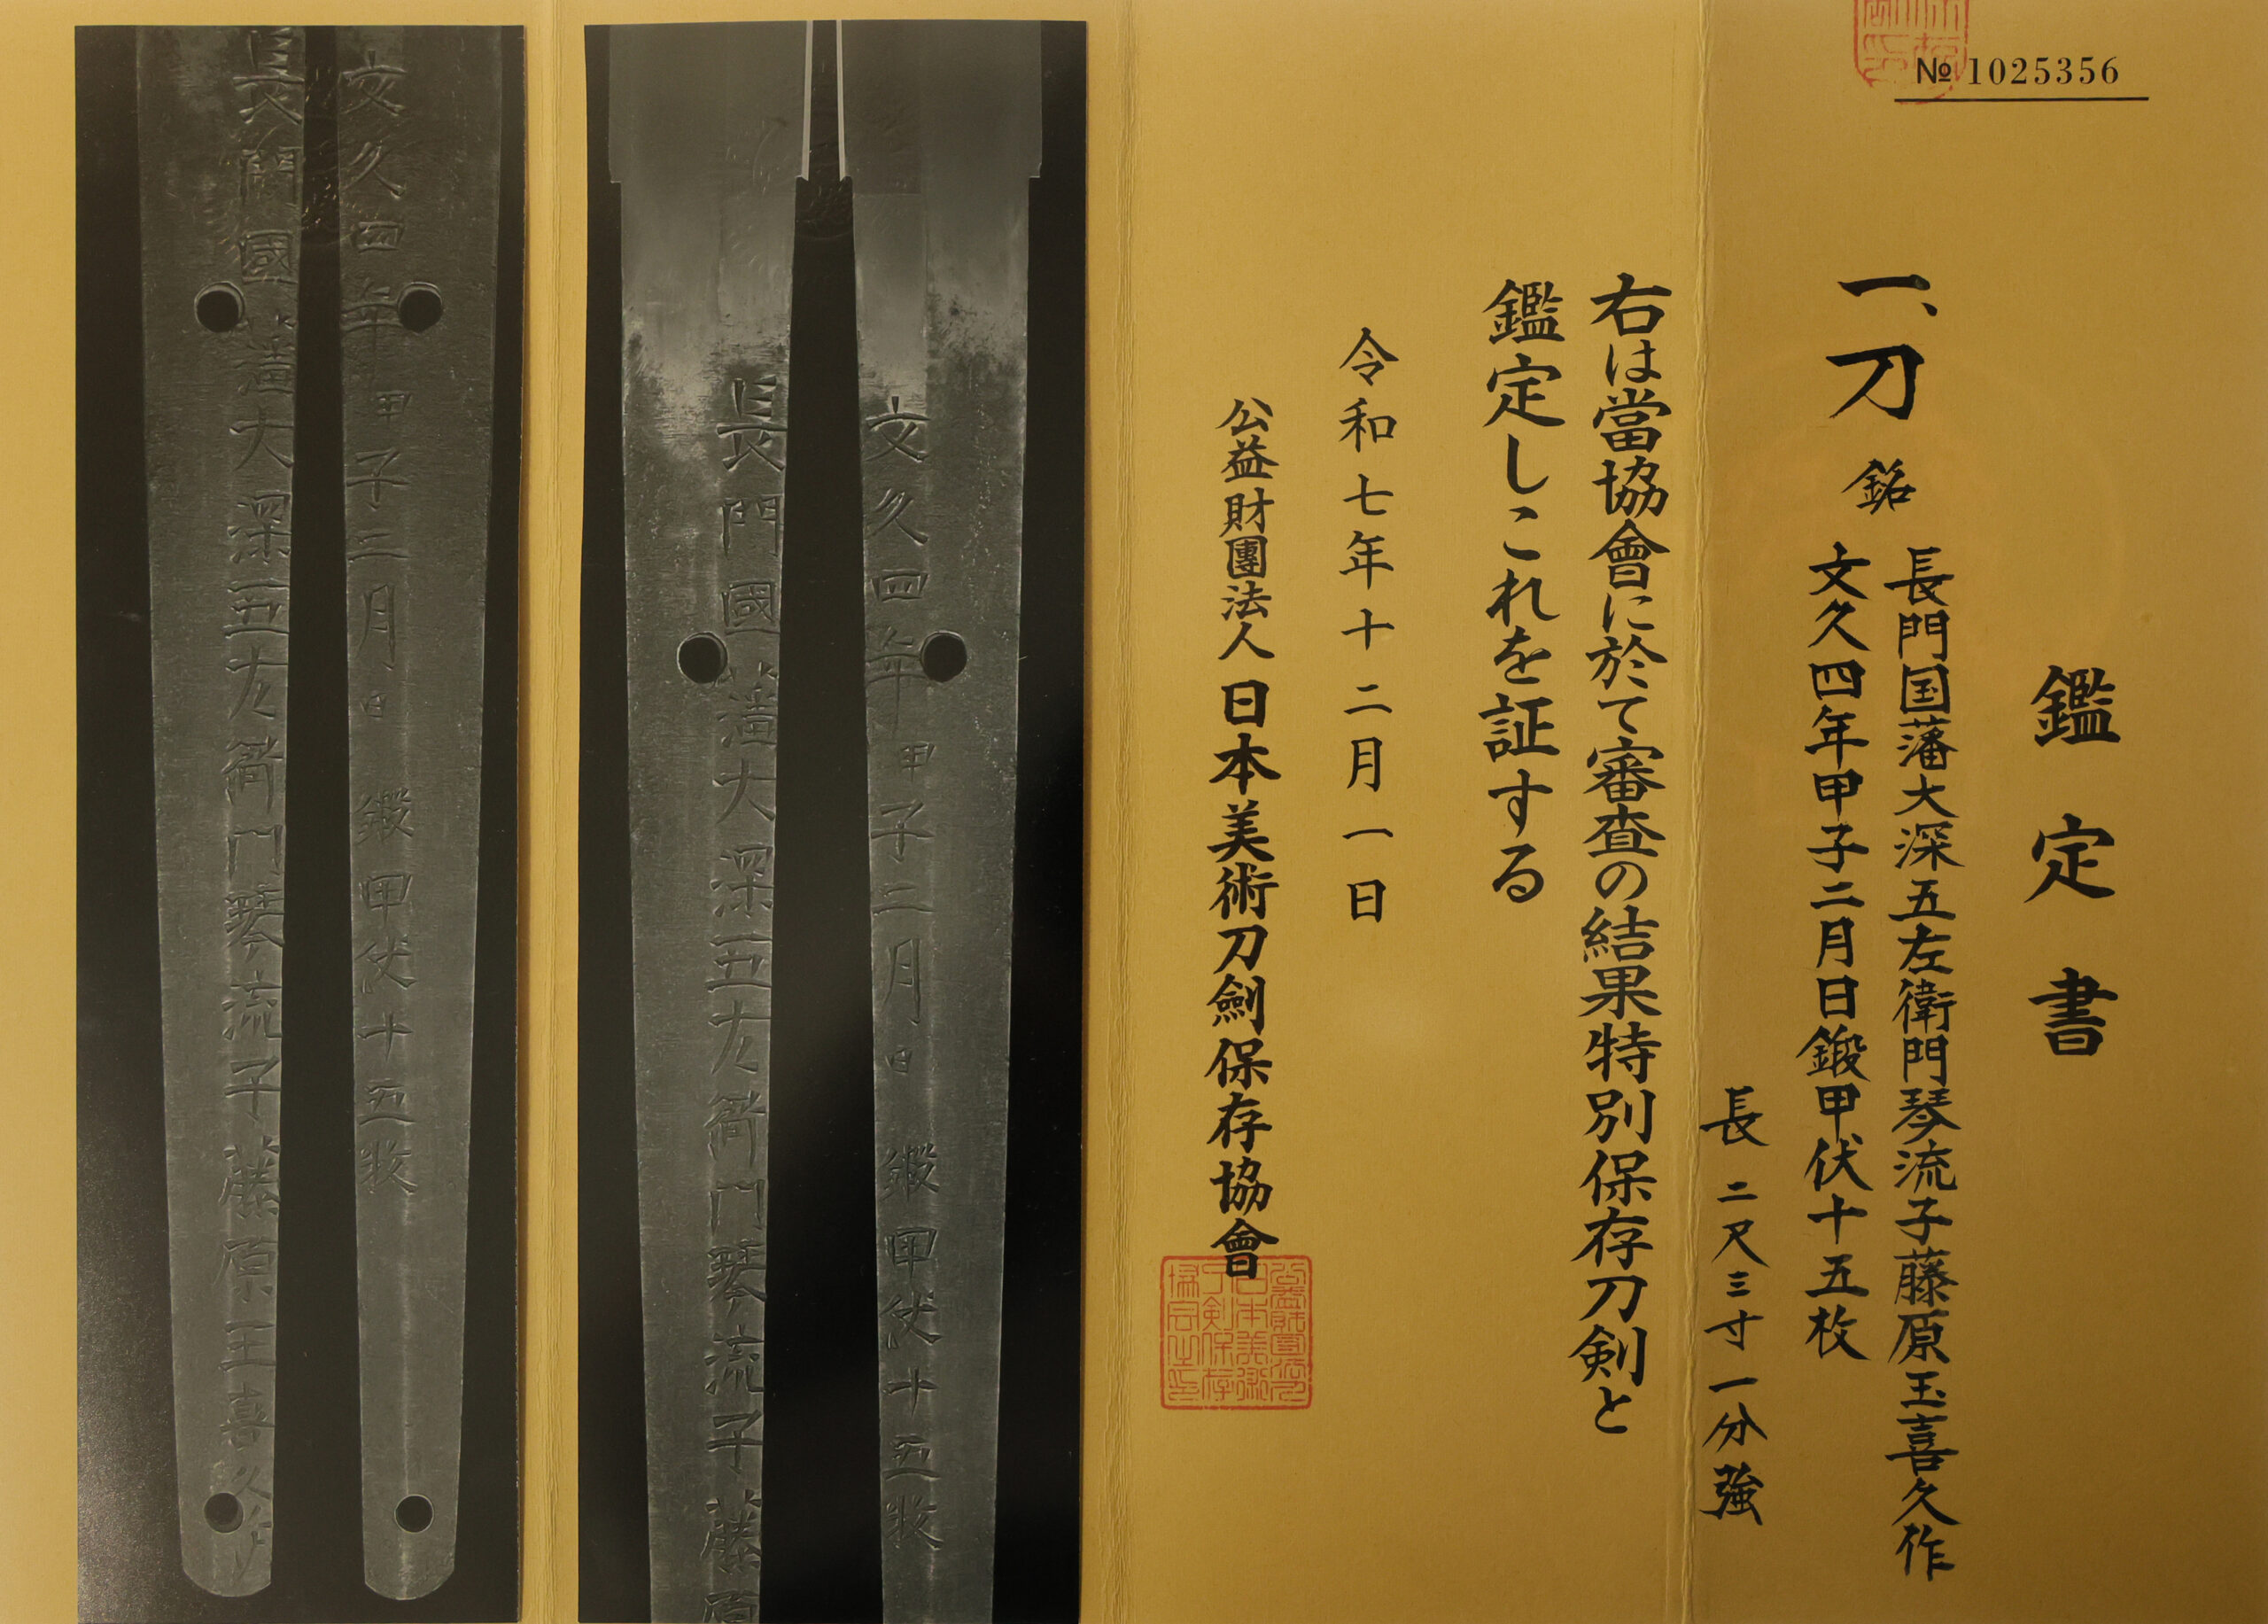 № 1025356
鑑定書
一、刀 銘
長門国藩大深五左衛門琴流子藤原玉喜久作
文久四年甲子二月日鍛甲伏十五枚
長 二尺三寸一分強
右は當協會に於て審査の結果特別保存刀剣と
鑑定しこれを証する
令和七年十二月一日
公益財團法人 日本美術刀劍保存協會
文久四年甲子二月日 鍛甲伏十五枚
長門國藩大深五左衛門琴流子藤原
文久四年甲子二月日 鍛甲伏十五枚
長門國藩大深五左衛門琴流子藤原玉喜久作